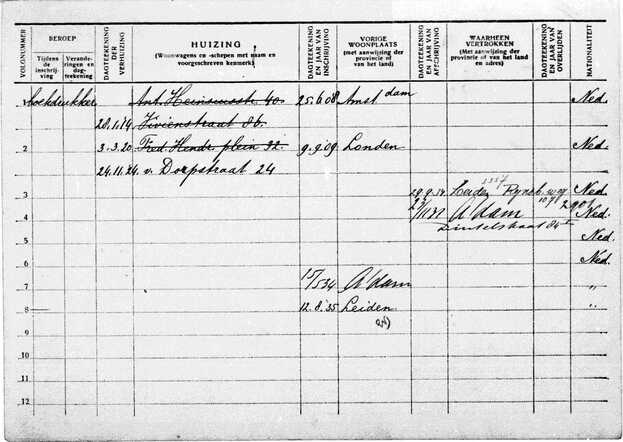 VOLGNUMMER
BEROEP
Tijdens de inschrijving
Veranderingen en dagteekening
DAGTEEKENING DER VERHUIZING
HUIZING
(Woonwagens en -schepen met naam en voorgeschreven kenmerk)
DAGTEEKENING EN JAAR VAN INSCHRIJVING
VORIGE WOONPLAATS
(met aanwijzing der provincie of van het land)
DAGTEEKENING EN JAAR VAN AFSCHRIJVING
WAARHEEN VERTROKKEN
(Met aanwijzing der provincie of van het land en adres)
DAGTEEKENING EN JAAR VAN OVERLIJDEN
NATIONALITEIT
1 boekdrukker Ant. Heinsiusstr 40 25.6.08 Amstdam Ned.
28.1.19 Vivienstraat 86.
2 3.3.20 Fred. Hendr. plein 32. 9.9.09 Londen Ned.
24.11.24 v. Dorpstraat 24
3 Leiden Rynsb. weg Ned.
4 A'dam Ned.
5 Ned.
6 Ned.
7 15/5 34 A'dam "
8 12.8.35 Leiden "
9
10
11
12